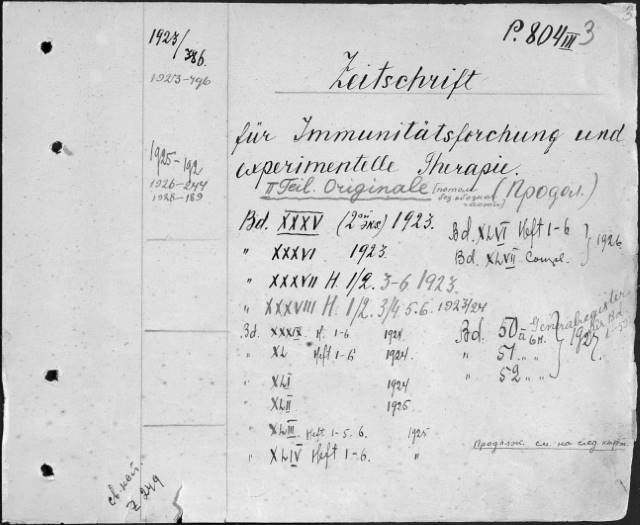 3
1923/386.
1923-796
1925-192
1926-244
1928-189
P. 804 III 3
Zeitschrift
für Immunitätsforchung und
experimentelle Therapie.
II Teil. Originale (потом без обознач. части) (Продол.)
Bd. XXXV (2ой экз.) 1923.
" XXXVI 1923.
" XXXVII H. 1/2. 3-6 1923.
" XXXVIII H. 1/2. 3/4. 5. 6. 1923/24
Bd. XXXIX. H. 1-6 1924
" XL Heft 1-6 1924.
" XLI 1924
" XLII 1925
" XLIII Heft 1-5. 6. 1925
" XLIV Heft 1-6. "
Bd. XLVI Heft 1-6
Bd. XLVII Compl.
} 1926
Bd. 50
" 51 " "
" 52 " "
} 1927.
Generalregister für Bd 1-50
Продолж. см. на след. карт.
Z 249